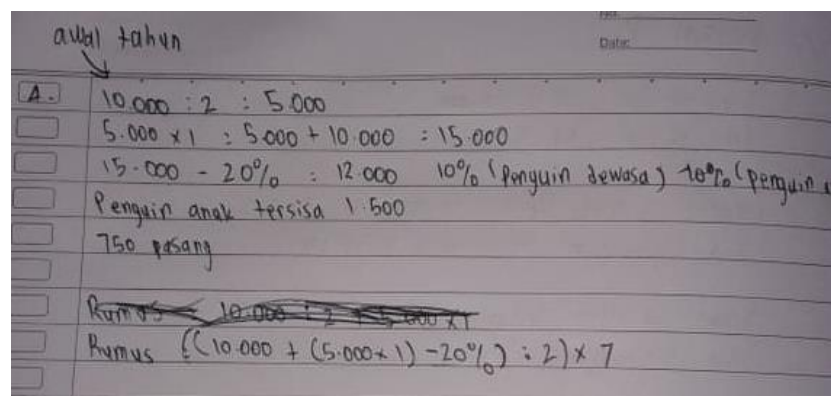 awal tahun
Date:
A. 10.000 : 2 : 5.000
5.000 x 1 : 5.000 + 10.000 : 15.000
15.000 - 20% : 12.000 10% (Penguin dewasa) 10% (penguin
Penguin anak tersisa 1.500
750 pasang
Rumus 10.000 : 2 + 5.000 x 1
Rumus ((10.000 + (5.000 x 1) - 20%) : 2) x 7